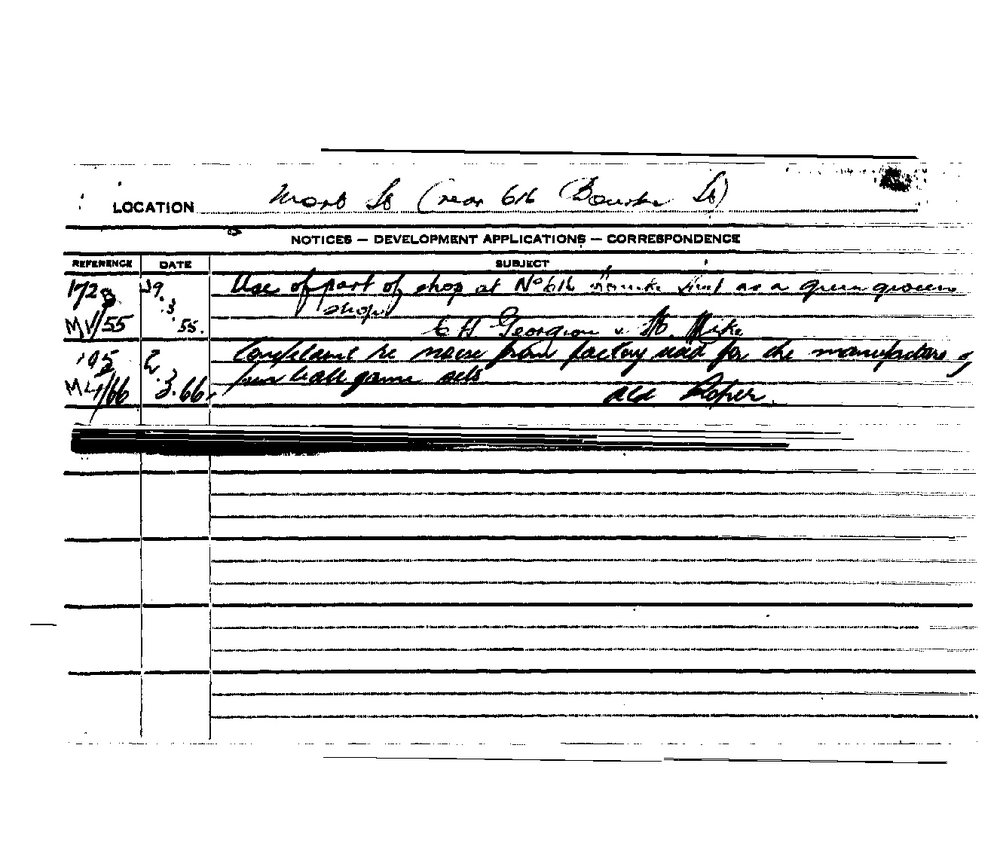 LOCATION Mort St (rear 616 Bourke St)
NOTICES — DEVELOPMENT APPLICATIONS — CORRESPONDENCE
REFERENCE DATE SUBJECT
1728 29. Use of part of shop at No 616 Bourke Street as a green grocers
.3. shop.
MV/55 55. C H Georgiou
195 2. Complaint re noise from factory used for the manufacture of
M4/66 3.66. game sets
Ald